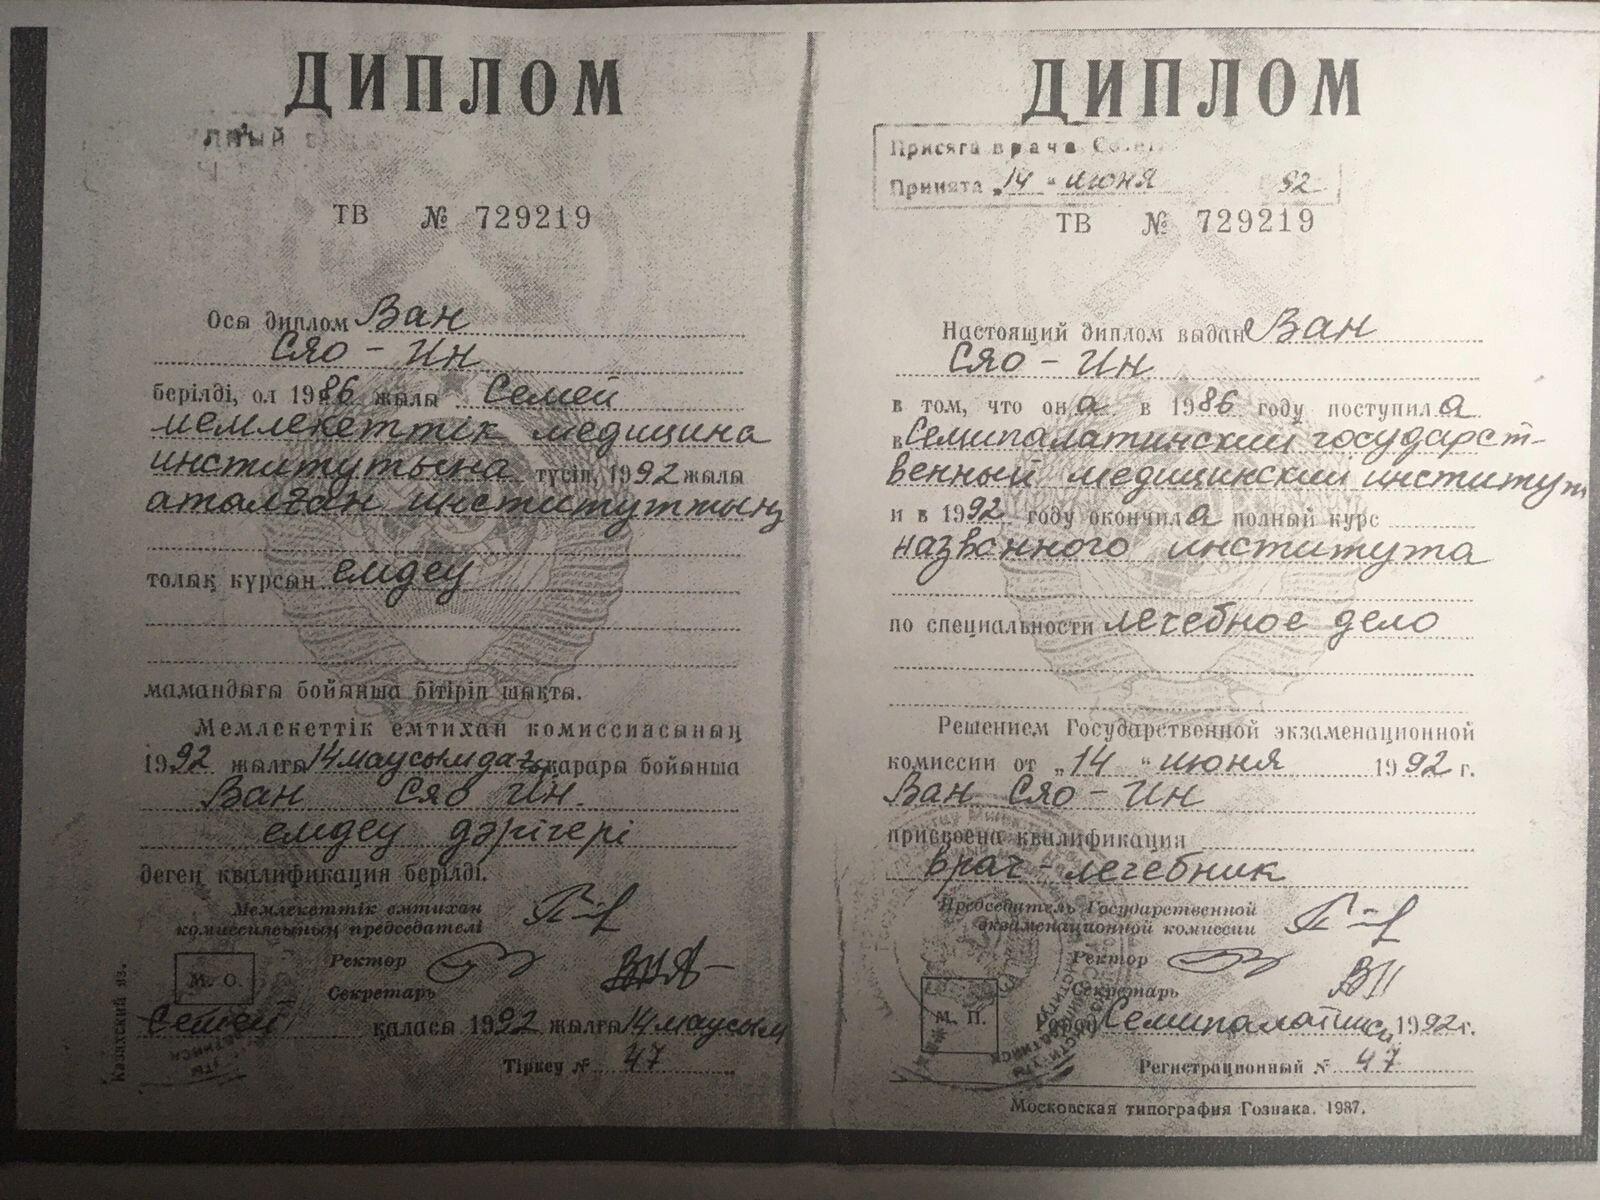 ДИПЛОМ
ТВ № 729219
Осы диплом Ван
Сяо - Ин
берілді, ол 1986 жылы Семей
мемлекеттік медицина
институтына түсіп, 1992 жылы
аталған институттың
толық курсын емдеу
мамандығы бойынша бітіріп шықты.
Мемлекеттік емтихан комиссиясының
1992 жылғы 14 маусымдағы қарары бойынша
Ван Сяо Ин.
емдеу дәрігері
деген квалификация берілді.
Мемлекеттік емтихан
комиссиясының председателі
Ректор
М. О.
Секретарь
Семей қаласы 1992 жылғы 14 маусым
Тіркеу № 47
Казахский яз.
ДИПЛОМ
Присяга врача
Принята „14“ июня 92
ТВ № 729219
Настоящий диплом выдан Ван
Сяо - Ин
в том, что она в 1986 году поступила
в Семипалатинский государст-
венный медицинский институт
и в 1992 году окончила полный курс
названного института
по специальности лечебное дело
Решением Государственной экзаменационной
комиссии от „14“ июня 1992 г.
Ван Сяо - Ин
присвоена квалификация
врач - лечебник
Председатель Государственной
экзаменационной комиссии
Ректор
Секретарь
М. П.
Город Семипалатинск 1992 г.
Регистрационный № 47
Московская типография Гознака. 1987.